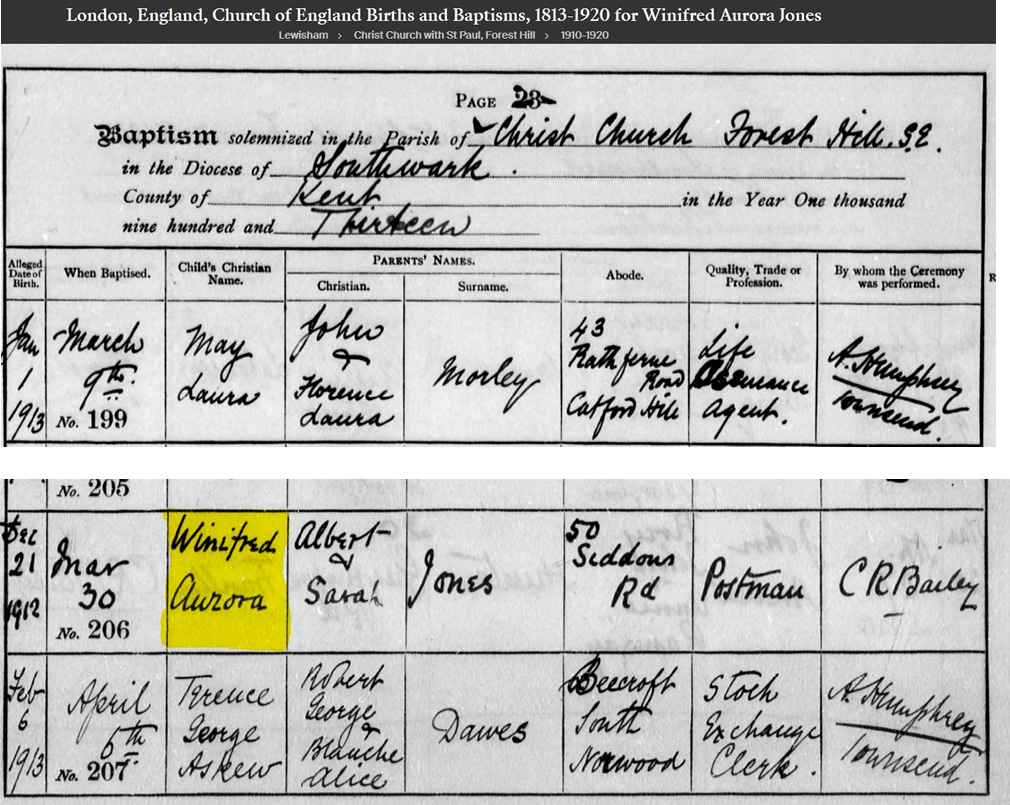 London, England, Church of England Births and Baptisms, 1813-1920 for Winifred Aurora Jones
Lewisham > Christ Church with St Paul, Forest Hill > 1910-1920
PAGE 23
Baptism solemnized in the Parish of Christ Church Forest Hill. S.E.
in the Diocese of Southwark.
County of Kent in the Year One thousand
nine hundred and Thirteen
Alleged Date of Birth. When Baptised. Child's Christian Name. PARENTS' NAMES. Christian. Surname. Abode. Quality, Trade or Profession. By whom the Ceremony was performed. R
Jan 1 1913
March 9th.
No. 199
May
Laura
John
&
Florence
Laura
Morley
43
Rathferne
Road
Catford Hill
Life
Assurance
Agent.
A. Humphrey
Townsend.
No. 205
Dec
21
1912
Mar
30
No. 206
Winifred
Aurora
Albert
&
Sarah
Jones
50
Siddons
Rd
Postman
C R Bailey
Feb
6
1913
April
6th
No. 207
Terence
George
Askew
Robert
George
&
Blanche
Alice
Dawes
Beecroft
South
Norwood
Stock
Exchange
Clerk.
A. Humphrey
Townsend.